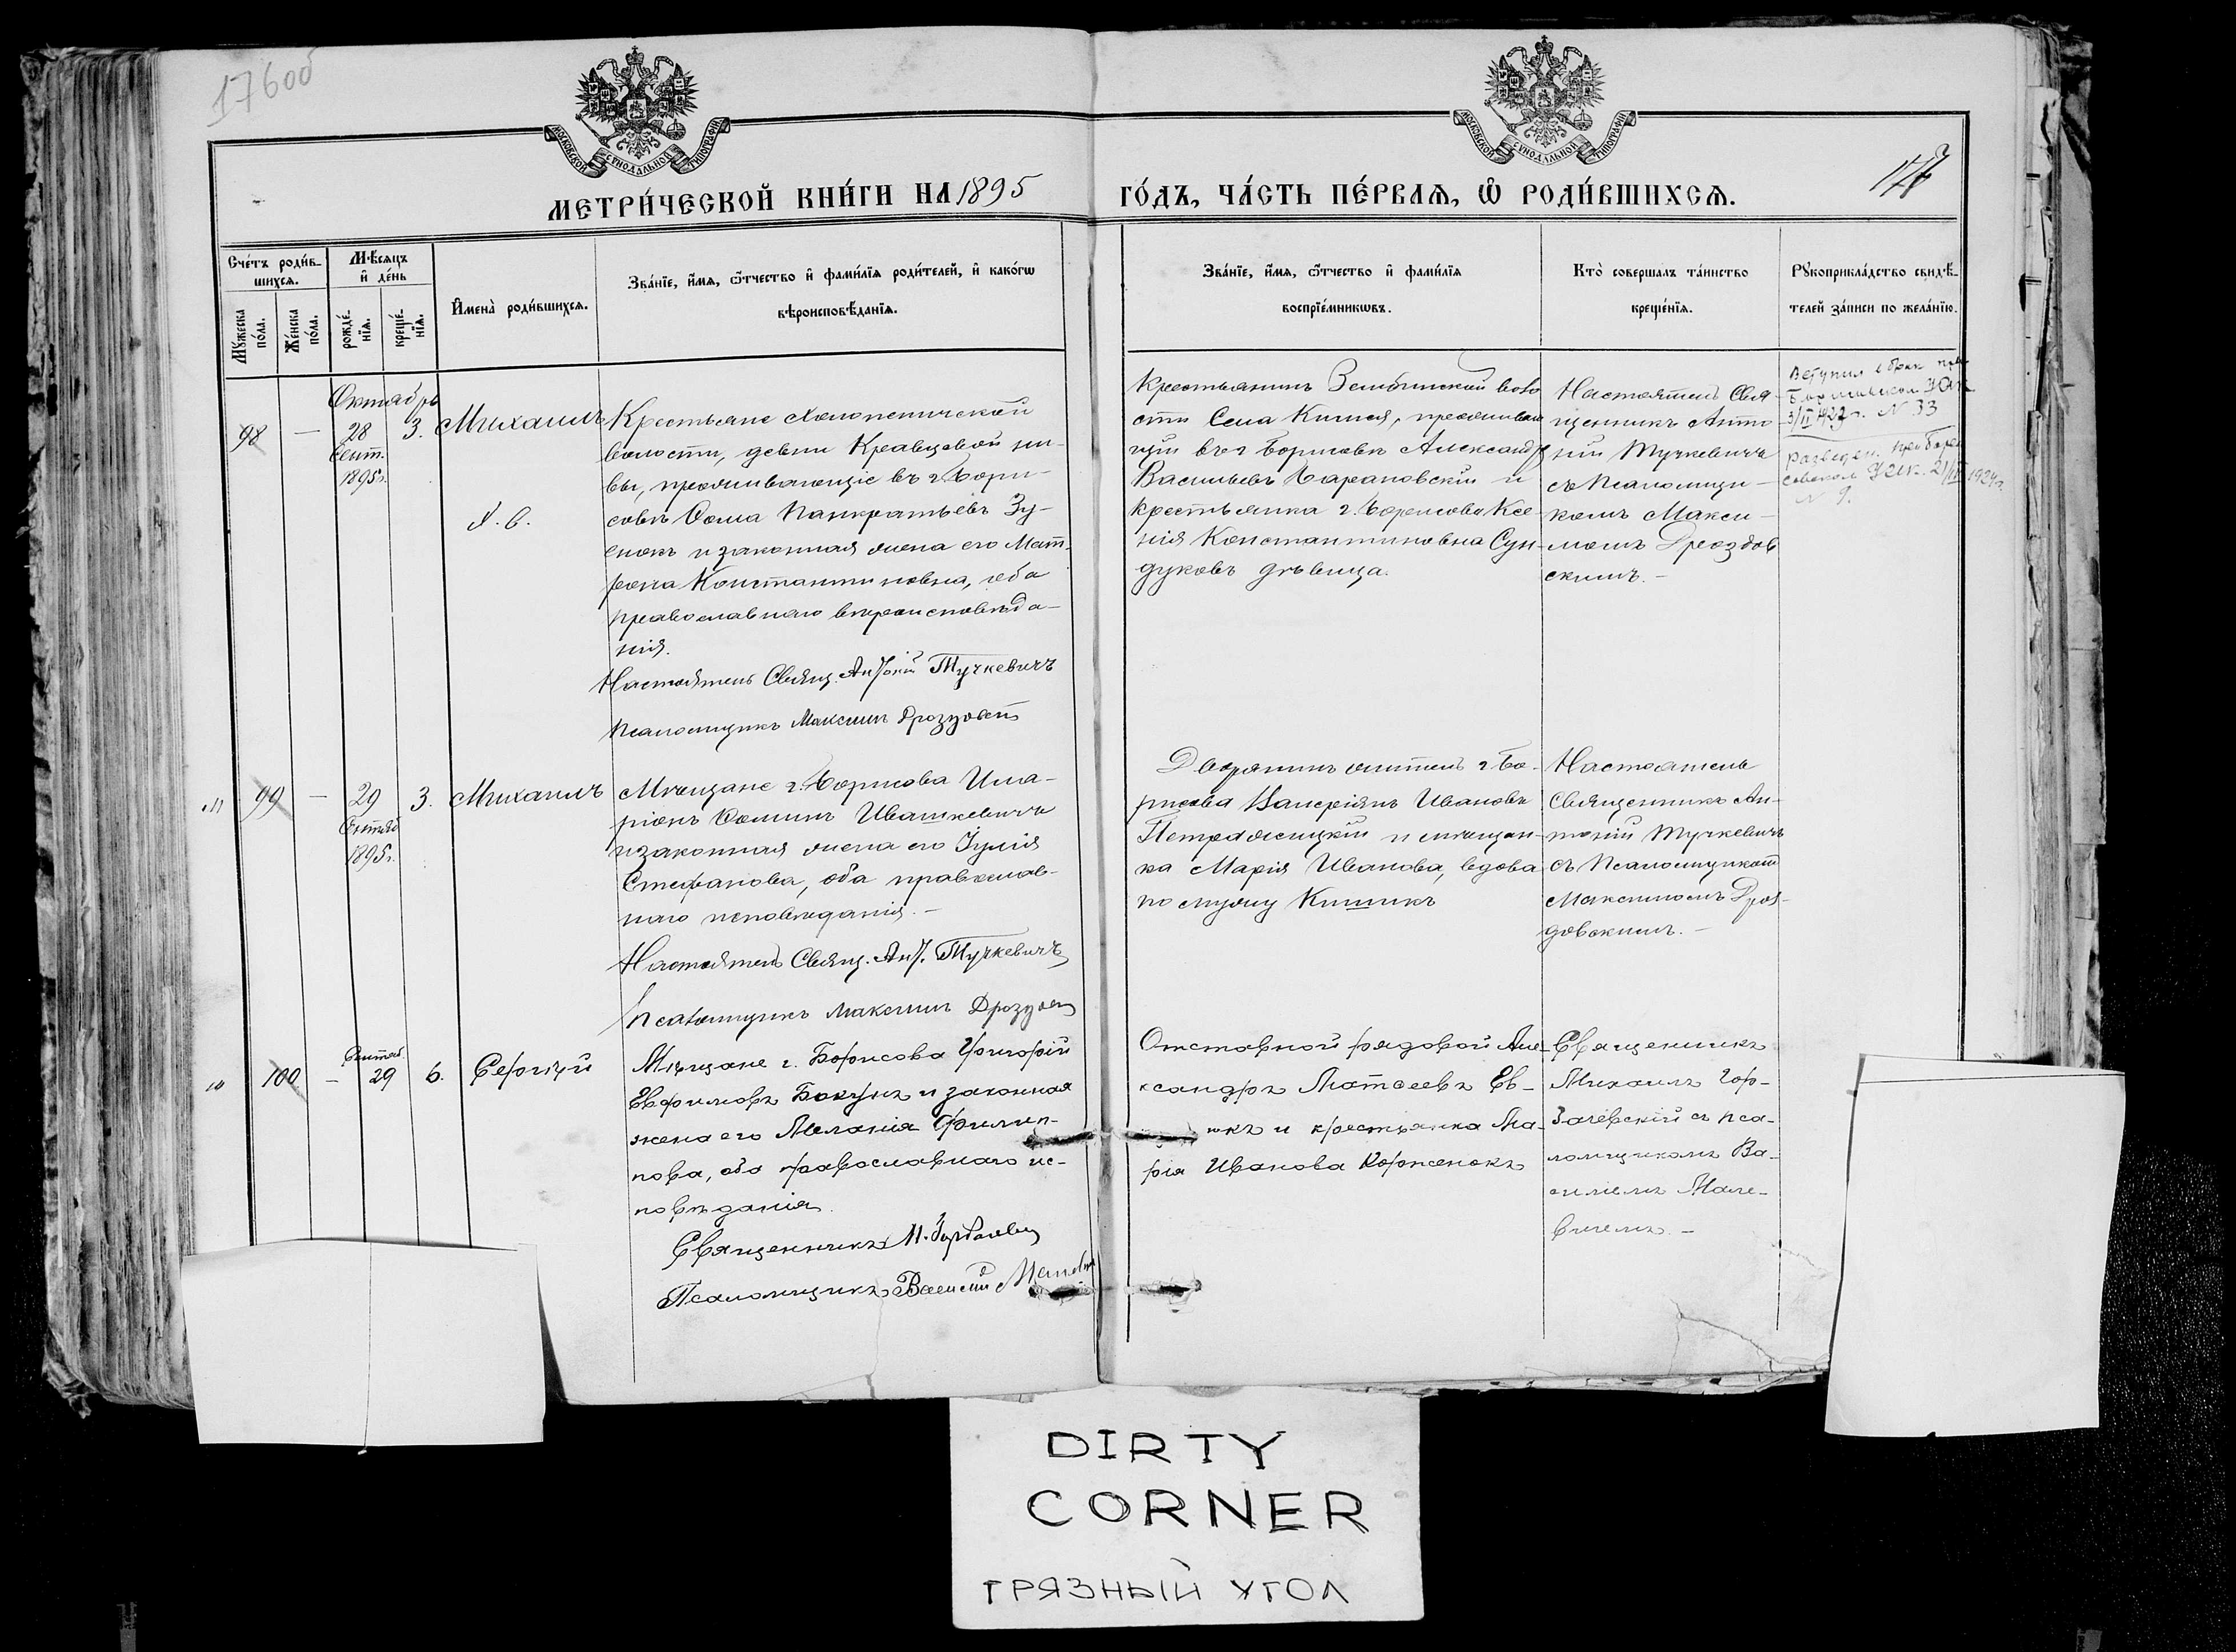 176об
МОСКОВСКОЙ СУНОДАЛЬНОЙ ТИПОГРАФІИ
МОСКОВСКОЙ СУНОДАЛЬНОЙ ТИПОГРАФІИ
МЕТРИ́ЧЕСКОЙ КНИ́ГИ НА 1895
ГО́ДЪ, ЧА́СТЬ ПЕ́РВАѦ, Ѡ РОДИ́ВШИХСѦ.
Сче́тъ роди́в-
шихсѧ.
Мꙋ́жеска по́ла.
Же́нска по́ла.
Мѣ́сѧцъ
и҆ де́нь
рожде́-
нїѧ.
креще́-
нїѧ.
И҆мена̀ роди́вшихсѧ.
Зва́нїе, и҆́мѧ, ѻ҆́тчество и҆ фами́лїѧ роди́телей, и҆ како́гѡ
вѣроисповѣ́данїѧ.
Зва́нїе, и҆́мѧ, ѻ҆́тчество и҆ фами́лїѧ
воспрїе́мникѡвъ.
Кто̀ соверша́лъ та́инство
креще́нїѧ.
Рꙋкоприкла́дство свидѣ́-
телей за́писи по жела́нїю.
Октябрь
98
—
28
Сент.
1895г.
3.
Михаилъ
Крестьяне Холопеничской
волости, девни Кравцовой ни-
вы, проживающіе въ г. Бори-
совѣ Ѳома Панкратьевъ Зу-
енокъ и законная жена его Мат-
рона Константиновна, оба
православнаго вѣроисповѣда-
нія.
Настоятель Свящ. Антоній Тучкевичъ
Псаломщикъ Максимъ Дроздовск
Крестьянинъ Зембинской воло
сти Села Кимея, проживаю
щій въ г Борисовѣ Александръ
Васильевъ Барановскій и
крестьянка г. Борисова Ксе-
нія Константиновна Сун-
дуковъ дѣвица.
Настоятель Свя-
щенникъ Анто-
ній Тучкевичъ
съ Псаломщи-
комъ Макси-
момъ Дроздов
скимъ. —
Вступил в брак
3/II 192 г. N 33
разведен
1924г.
N 9.
99
—
29
Сентяб
1895г.
3.
Михаилъ
Мѣщане г. Борисова Ила-
ріонъ Ѳоминъ Ивашкевичъ
и законная жена его Іулія
Стефанова, оба православ-
наго исповѣданія. —
Настоятель Свящ. Ант. Тучкевичъ
Псаломщикъ Максимъ Дроздовск
Дворянинъ житель г. Бо-
рисова Валеріянъ Ивановъ
Петражицкій и мѣщан-
ка Марія Иванова, вдова
по мужу Кишикъ
Настоятель
Священникъ Ан-
тоній Тучкевичъ
съ Псаломщикомъ
Максимомъ Дроз-
довскимъ. —
100
—
Сентяб.
29
6.
Сергій
Мѣщане г. Борисова Григорій
Евфимовъ Бакунъ и законная
жена его Меланія Филип-
пова, оба православнаго ис-
повѣданія.
Священникъ М. Горбачевск
Псаломщикъ Василій Малевич
Отставной рядовой Але-
ксандръ Матѳеевъ Ев-
и крестьянка Ма-
рія Иванова Корженокъ
Священникъ
Михаилъ Гор-
бачевскій съ пса-
ломщикомъ Ва-
силіемъ Мале-
вичемъ. —
DIRTY
CORNER
ГРЯЗНЫЙ УГОЛ